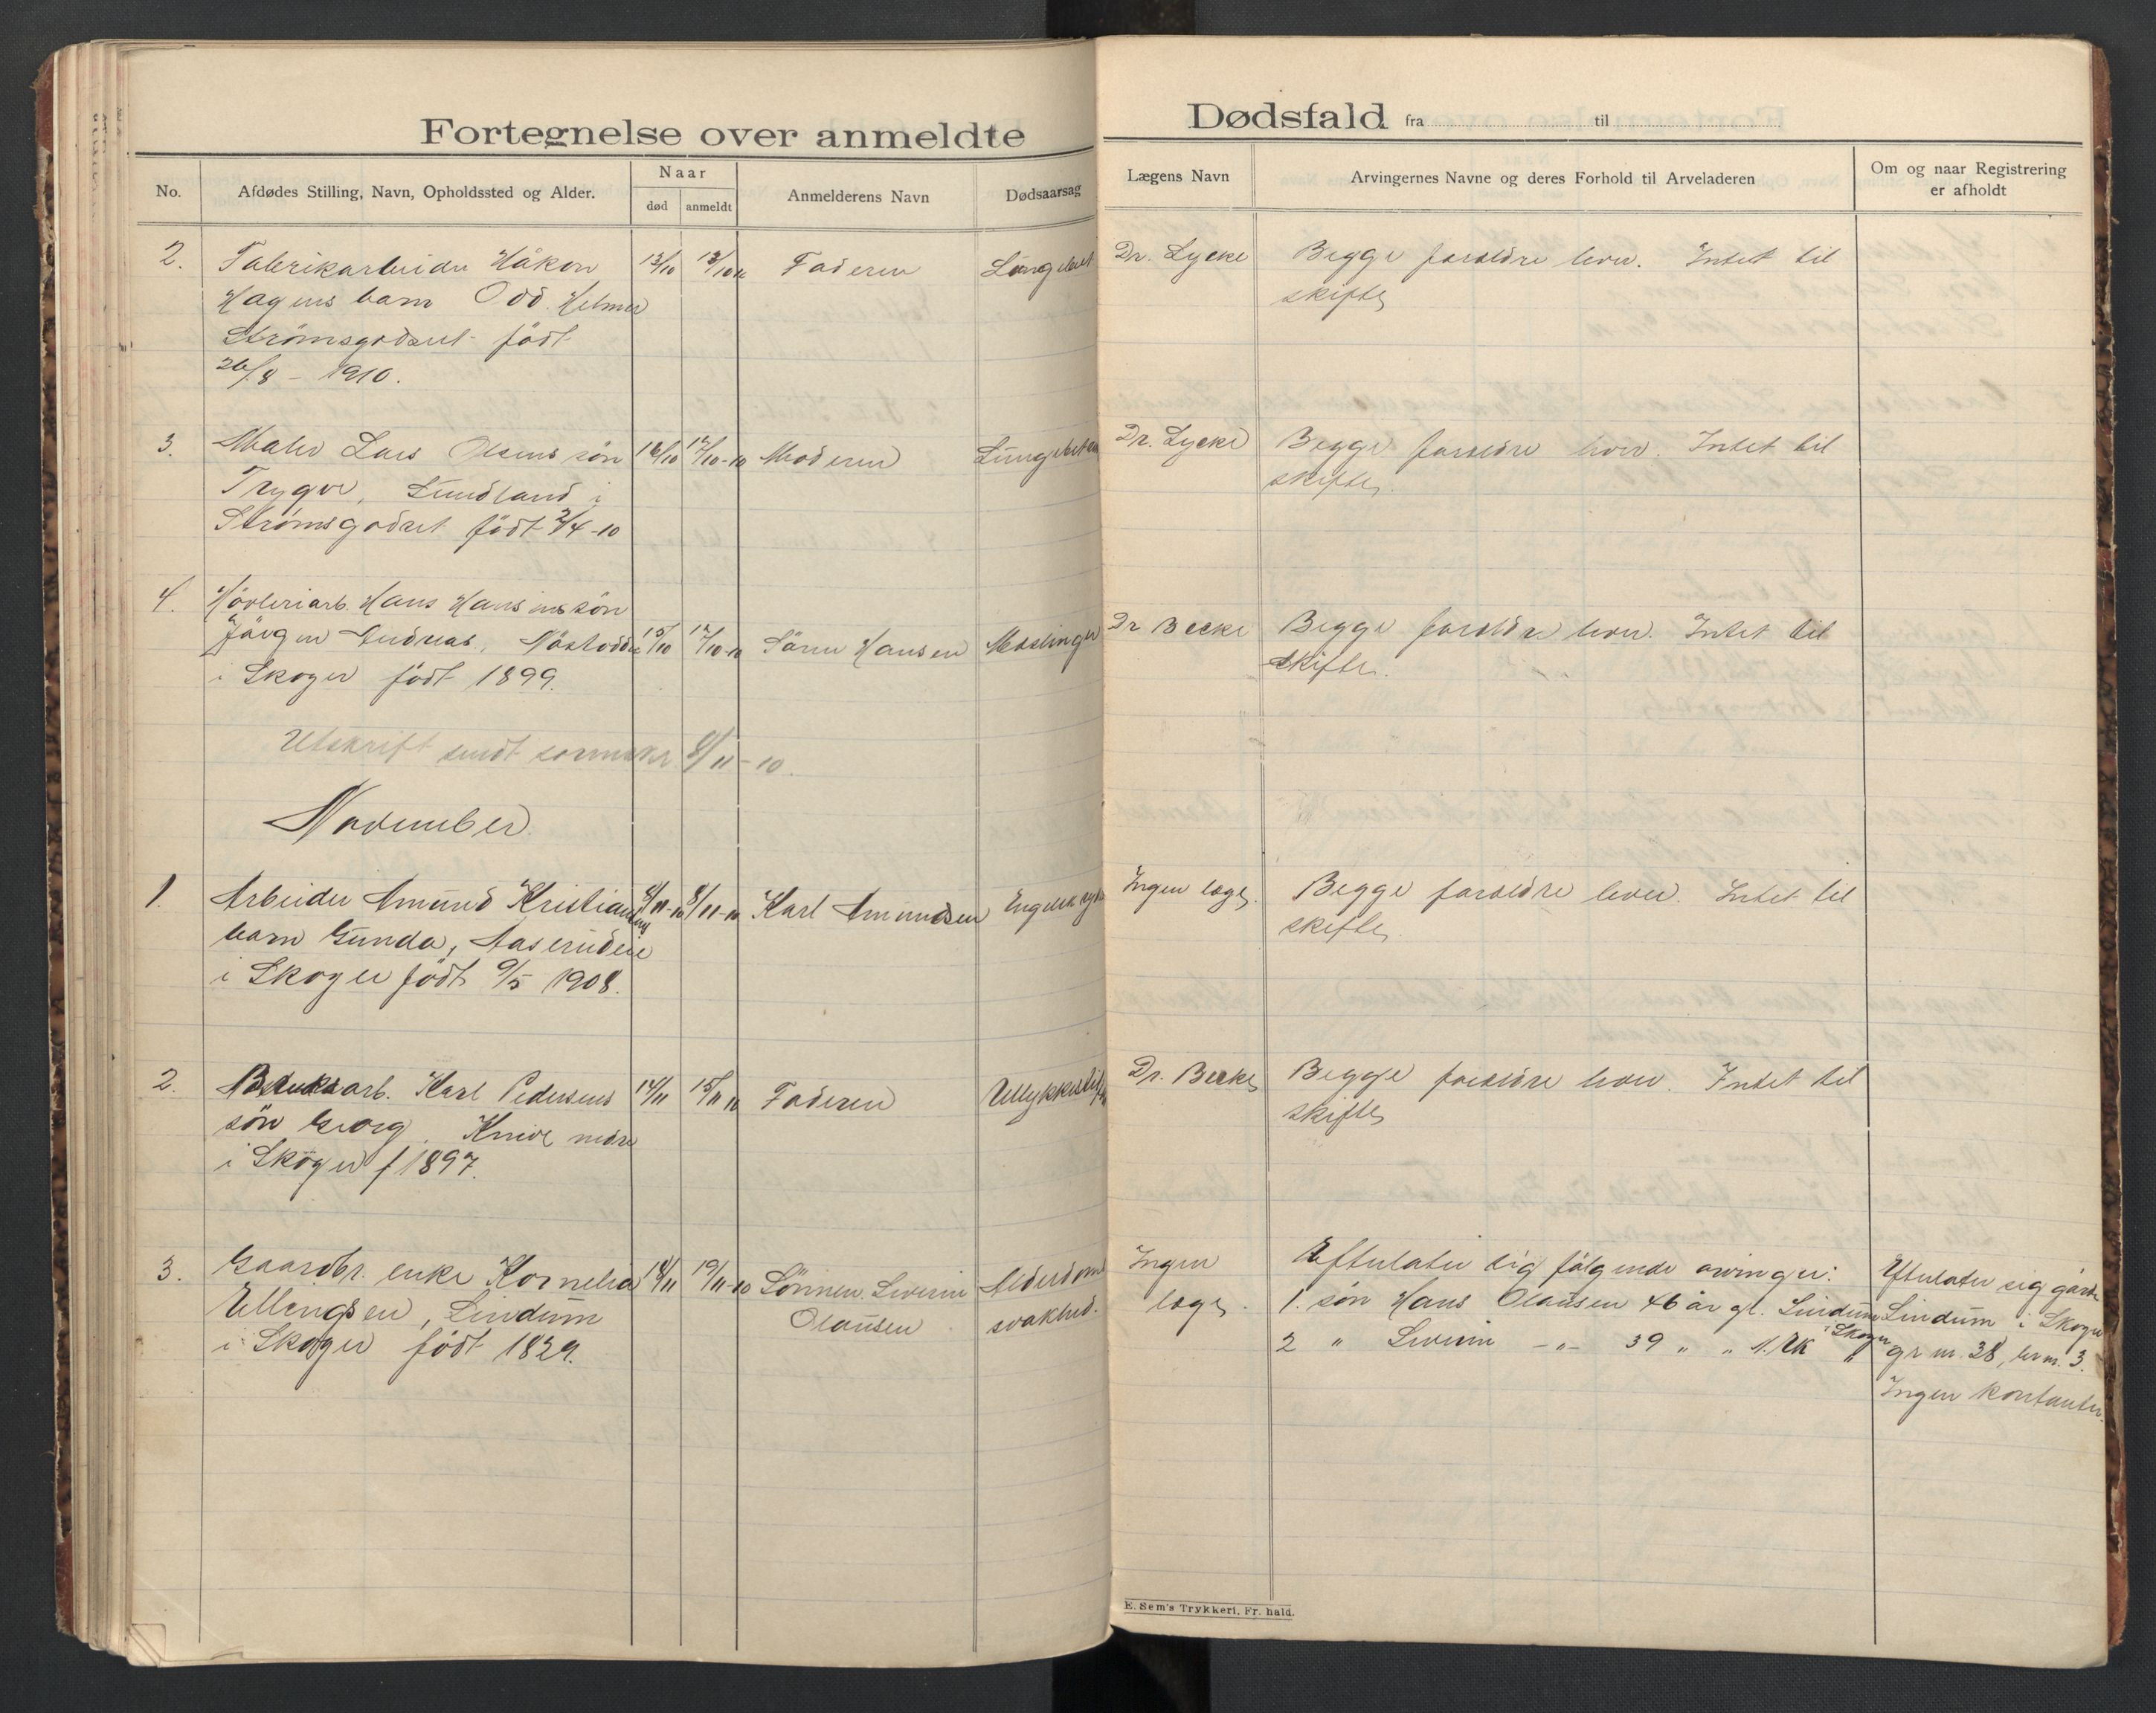 Fortegnelse over anmeldte
No.
Afdødes Stilling, Navn, Opholdssted og Alder.
Naar
død
anmeldt
Anmelderens Navn
Dødsaarsag
2.
Fabrikarbeider Håkon
Hagens barn Odd. Helmer
Strømsgodset født
26/8 - 1910.
13/10
Faderen
3.
Maler Lars Olsens søn
Trygve, Sundland i
Strømsgodset født 2/4 -10
16/10
17/10-10
Moderen
4.
Høvleriarb. Hans Hansens søn
Jørgen Andreas, Nøstodden
i Skoger født 1899.
15/10
17/10-10
Søren Hansen
Meslinger
Utskrift sendt sorenskr 8/11 - 10.
November.
1.
Arbeider Amund Kristiansens
barn Gunda, Aaserudeie
i Skoger født 9/5 1908.
8/11-10
Karl Amundsen
2.
Karl Pedersens
søn Georg. Knive nedre
i Skoger f 1897.
14/11
15/11 10
Faderen
Ulykkestilf
3.
Gaardbr. enke Kornelia
Ellengsen, Lindum
i Skoger født 1829.
18/11
19/11-10
Sønnen Severin
Olausen
Alderdoms
svakhed.
Dødsfald fra til
Lægens Navn
Arvingernes Navne og deres Forhold til Arveladeren
Om og naar Registrering
er afholdt
Dr. Lycke
Begge forældre lever. Intet til
skifte
Dr. Lycke
Begge forældre lever. Intet til
skifte.
Dr Becke
Begge forældre lever. Intet til
skifte.
Ingen læge.
Begge forældre lever. Intet til
skifte.
Dr. Becke
Begge forældre lever. Intet til
skifte
Ingen
læge.
Efterlater sig følgende arvinger:
1. søn Hans Olausen 46 år gl. Lindum
i Skoger
2 " Severin -"- 39 " "
Efterlater sig gården
Lindum i Skoger
gr nr. 38, br nr. 3.
Ingen kontanter.
E. Sem's Trykkeri, Fr. hald.